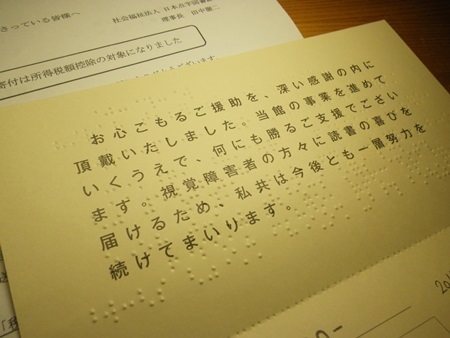 さっている皆様へ
社会福祉法人 日本点字図書館
理事長 田中
寄付は所得税額控除の対象になりました
お心こもるご援助を、深い感謝の内に
頂戴いたしました。当館の事業を進めて
いくうえで、何にも勝るご支援でござい
ます。視覚障害者の方々に読書の喜びを
届けるため、私共は今後とも一層努力を
続けてまいります。